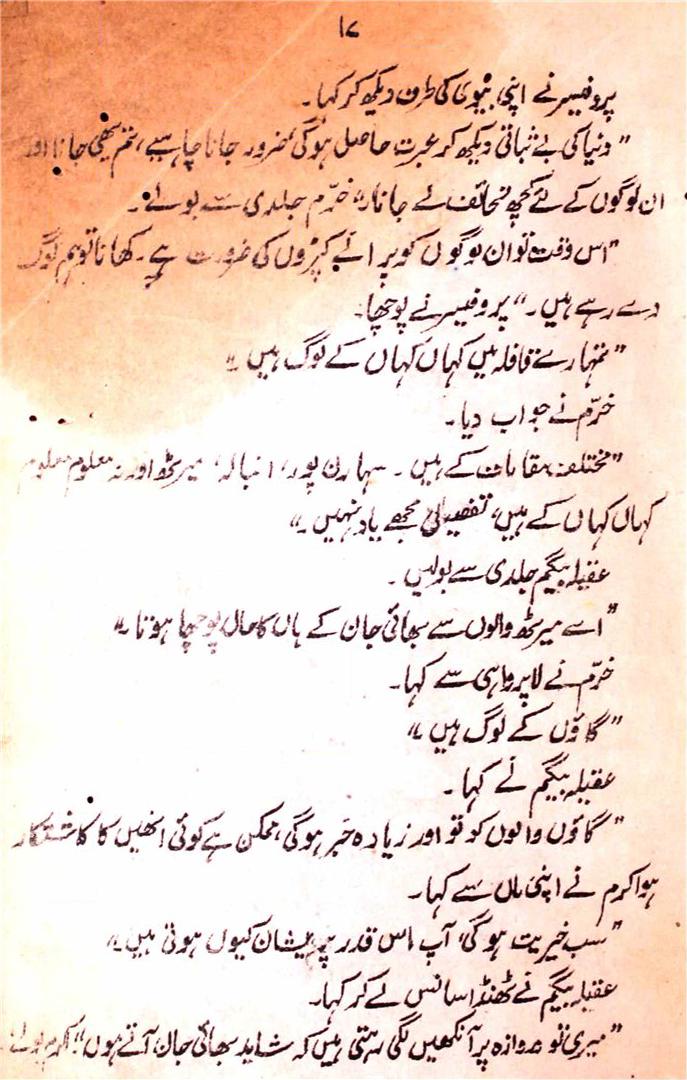 ۱۷
پروفیسر نے اپنی بیوی کی طرف دیکھ کر کہا۔
”دنیا کی بے ثباتی دیکھ کر عبرت حاصل ہوگی، ضرور جانا چاہیے، تم بھی جانا اور
ان لوگوں کے لئے کچھ تحائف لے جانا۔“ خرّم جلدی سے بولے۔
”اس وقت تو ان لوگوں کو پرانے کپڑوں کی ضرورت ہے۔ کھانا تو ہم لوگ
دے رہے ہیں۔“ پروفیسر نے پوچھا۔
”تمہارے قافلہ میں کہاں کہاں کے لوگ ہیں۔“
خرّم نے جواب دیا۔
”مختلف مقامات کے ہیں۔ سہارن پور، انبالہ، میرٹھ اور نہ معلوم معلوم
کہاں کہاں کے ہیں، تفصیل مجھے یاد نہیں۔“
عقیلہ بیگم جلدی سے بولیں۔
”اے میرٹھ والوں سے بھائی جان کے ہاں کا حال پوچھا ہوتا۔“
خرّم نے لاپرواہی سے کہا۔
”گاؤں کے لوگ ہیں۔“
عقیلہ بیگم نے کہا۔
”گاؤں والوں کو تو اور زیادہ خبر ہوگی، ممکن ہے کوئی انھیں کا کاشتکار
ہو اکرم نے اپنی ماں سے کہا۔
”سب خیریت ہوگی، آپ اس قدر پریشان کیوں ہوتی ہیں۔“
عقیلہ بیگم نے ٹھنڈا سانس لے کر کہا۔
”میری تو دروازہ پر آنکھیں لگی رہتی ہیں کہ شاید بھائی جان آتے ہوں“ اکرم بولے۔